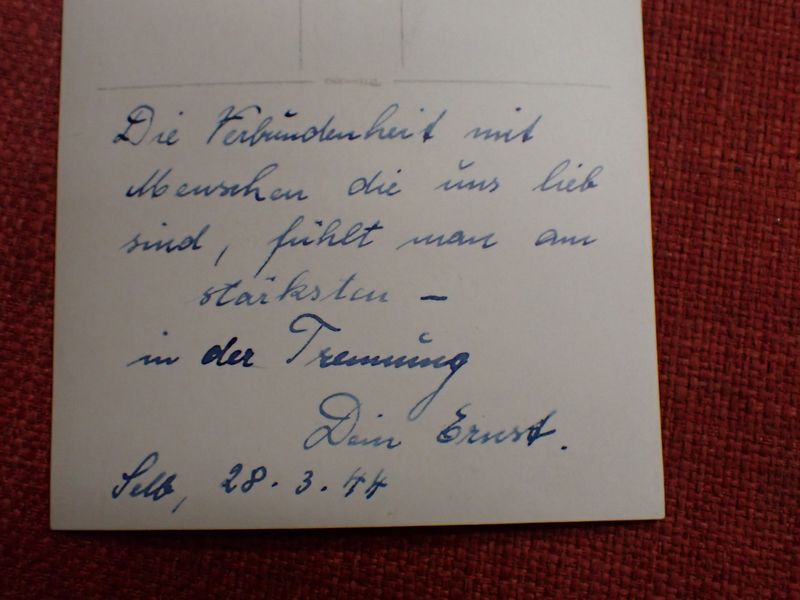 Die Verbundenheit mit
Menschen die uns lieb
sind, fühlt man am
stärksten –
in der Trennung
Dein Ernst.
Selb, 28.3.44